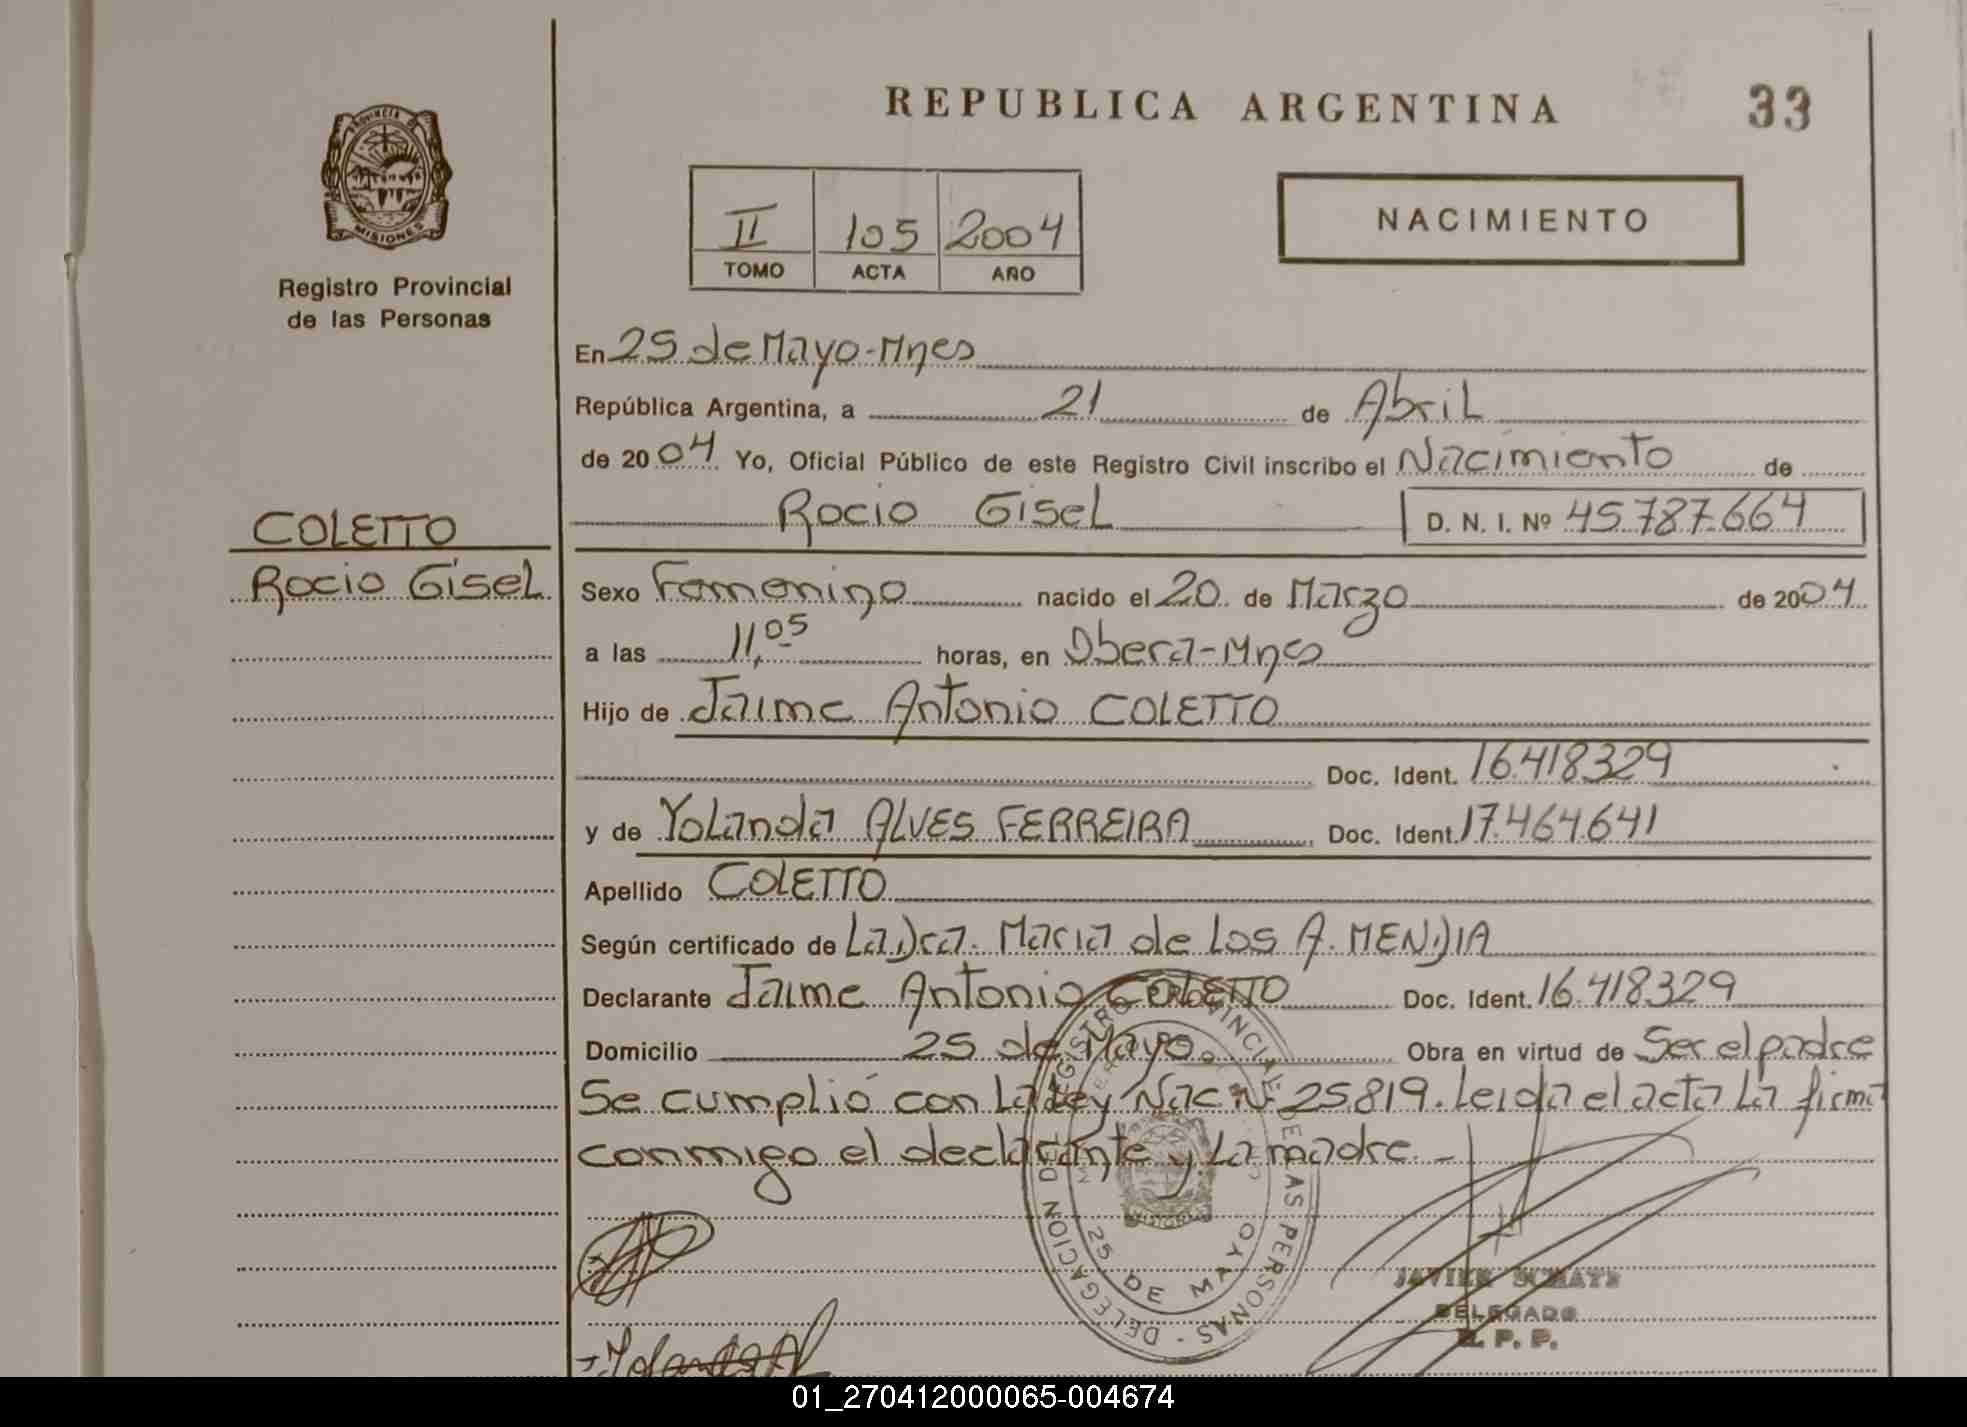 REPUBLICA ARGENTINA
33
PROVINCIA DE
MISIONES
Registro Provincial
de las Personas
II 105 2004
TOMO ACTA AÑO
NACIMIENTO
En 25 de Mayo-Mnes
República Argentina, a 21 de Abril
de 2004 Yo, Oficial Público de este Registro Civil inscribo el Nacimiento de
Rocio Gisel D. N. I. Nº 45.787.664
COLETTO
Rocio Gisel
Sexo Femenino nacido el 20 de Marzo de 2004
a las 11,05 horas, en Obera-Mnes
Hijo de Jaime Antonio COLETTO
Doc. Ident. 16.418329
y de Yolanda ALVES FERREIRA Doc. Ident. 17.464.641
Apellido COLETTO
Según certificado de La Dra. Maria de Los A. MENDIA
Declarante Jaime Antonio COLETTO Doc. Ident. 16.418329
Domicilio 25 de Mayo Obra en virtud de Ser el padre
Se cumplió con La Ley Nac Nº 25.819. Leida el acta La firma
conmigo el declarante y La madre.-
DELEGACION DEL REGISTRO PROVINCIAL DE LAS PERSONAS -
25 DE MAYO
MISIONES
JAVIER
DELEGADO
R. P. P.
Yolanda
01_270412000065-004674